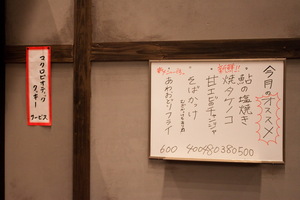 今月のオススメ
鮎の塩焼き
焼タケノコ
甘エビチャンジャ
そばがっけ
あわおどりフライ
500
380
480
400
600
マクロビオティック
クッキー
サービス